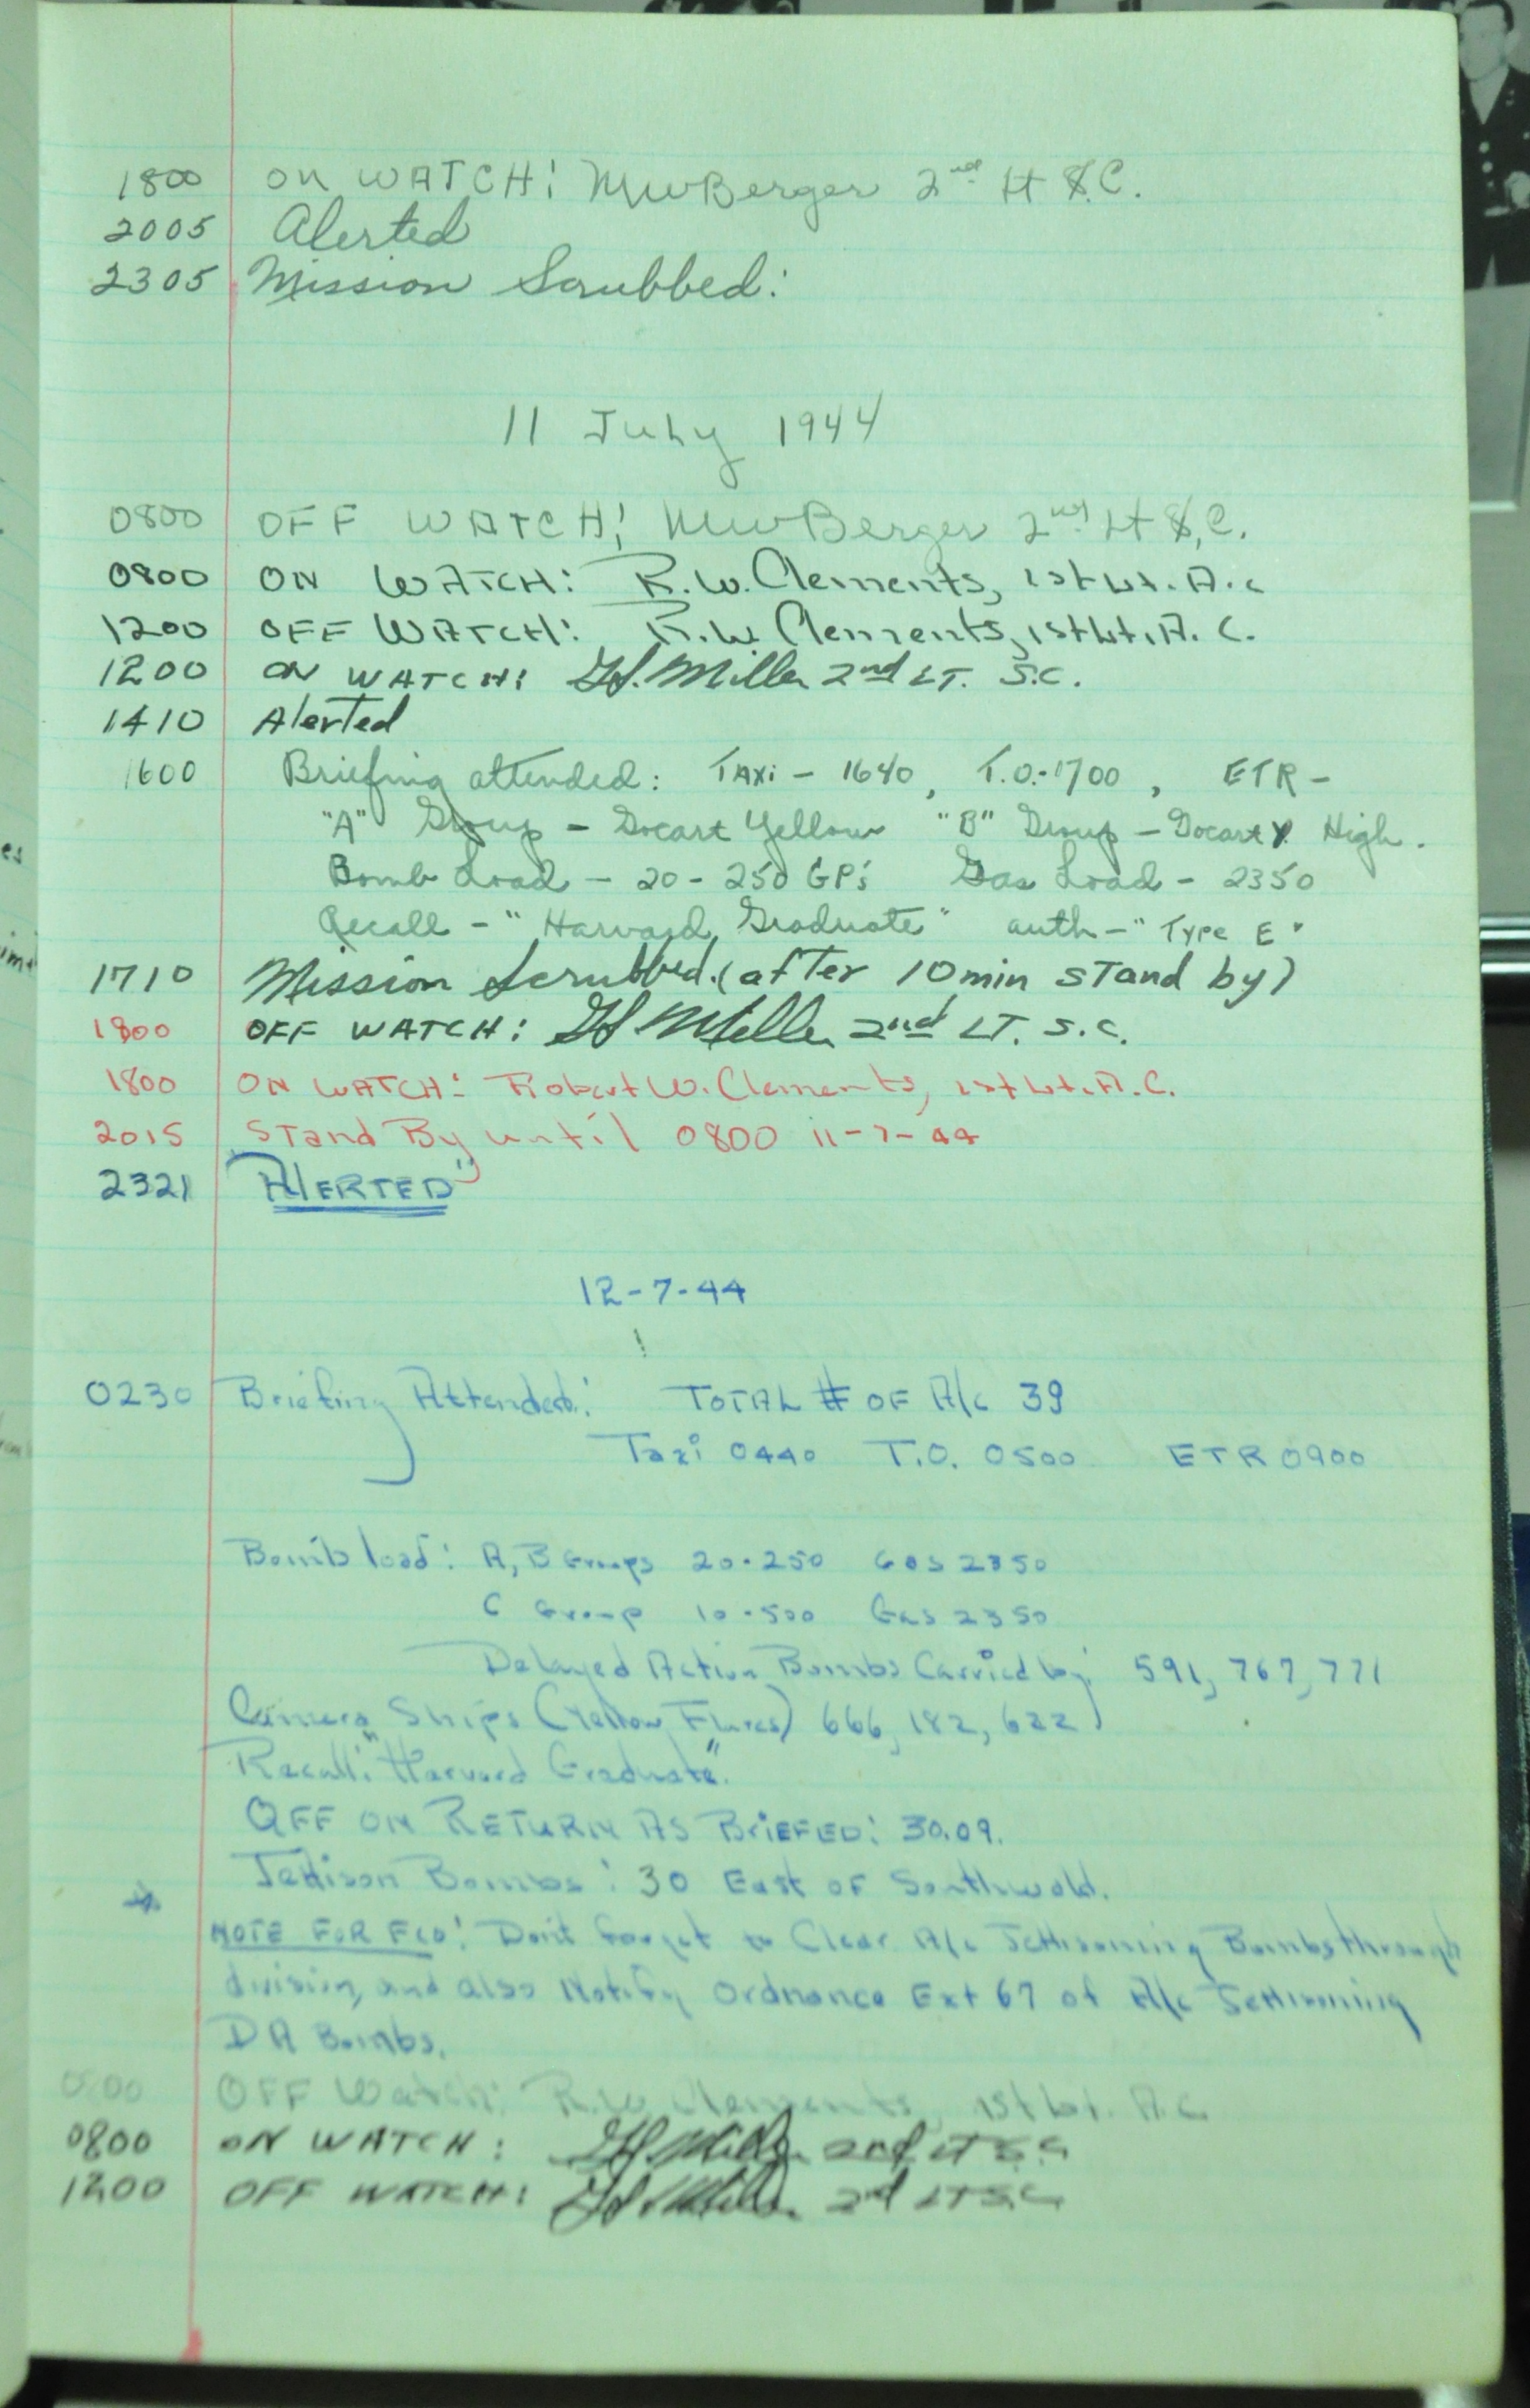 1800 ON WATCH: MWBerger 2nd Lt S.C.
2005 Alerted
2305 Mission Scrubbed:
11 July 1944
0800 OFF WATCH: MWBerger 2nd Lt S.C.
0800 ON WATCH: R.W. Clements, 1st Lt. A.C
1200 OFF WATCH: R.W. Clements, 1st Lt. A.C.
1200 ON WATCH: Miller 2nd LT. S.C.
1410 Alerted
1600 Briefing attended: TAXi - 1640, T.O.-1700, ETR -
"A" Group - Gocart Yellow "B" Group - Gocart Y. High.
Bomb Load - 20 - 250 GP's Gas Load - 2350
Recall - "Harvard Graduate" auth - "Type E"
1710 Mission Scrubbed. (after 10 min stand by)
1800 OFF WATCH: Miller 2nd LT. S.C.
1800 ON WATCH: Robert W. Clements, 1st Lt. A.C.
2015 Stand By until 0800 11-7-44
2321 ALERTED
12-7-44
0230 Briefing Attended: TOTAL # OF A/c 39
Taxi 0440 T.O. 0500 ETR 0900
Bomb load: A, B Groups 20-250 Gas 2350
C Group 10-500 Gas 2350
Delayed Action Bombs Carried by: 591, 767, 771
Camera Ships (Yellow Flares) 666, 182, 622
Recall: "Harvard Graduate".
QFF ON RETURN AS BRIEFED: 30.09.
Jettison Bombs: 30 East OF Southwold.
NOTE FOR FCO: Don't forget to Clear A/c Jettisoning Bombs through
division, and also Notify Ordnance Ext 67 of A/c Jettisoning
DA Bombs.
0800 OFF Watch: R.W. Clements, 1st Lt. A.C.
0800 ON WATCH: Miller 2nd LT S.C
1200 OFF WATCH: Miller 2nd LT S.C